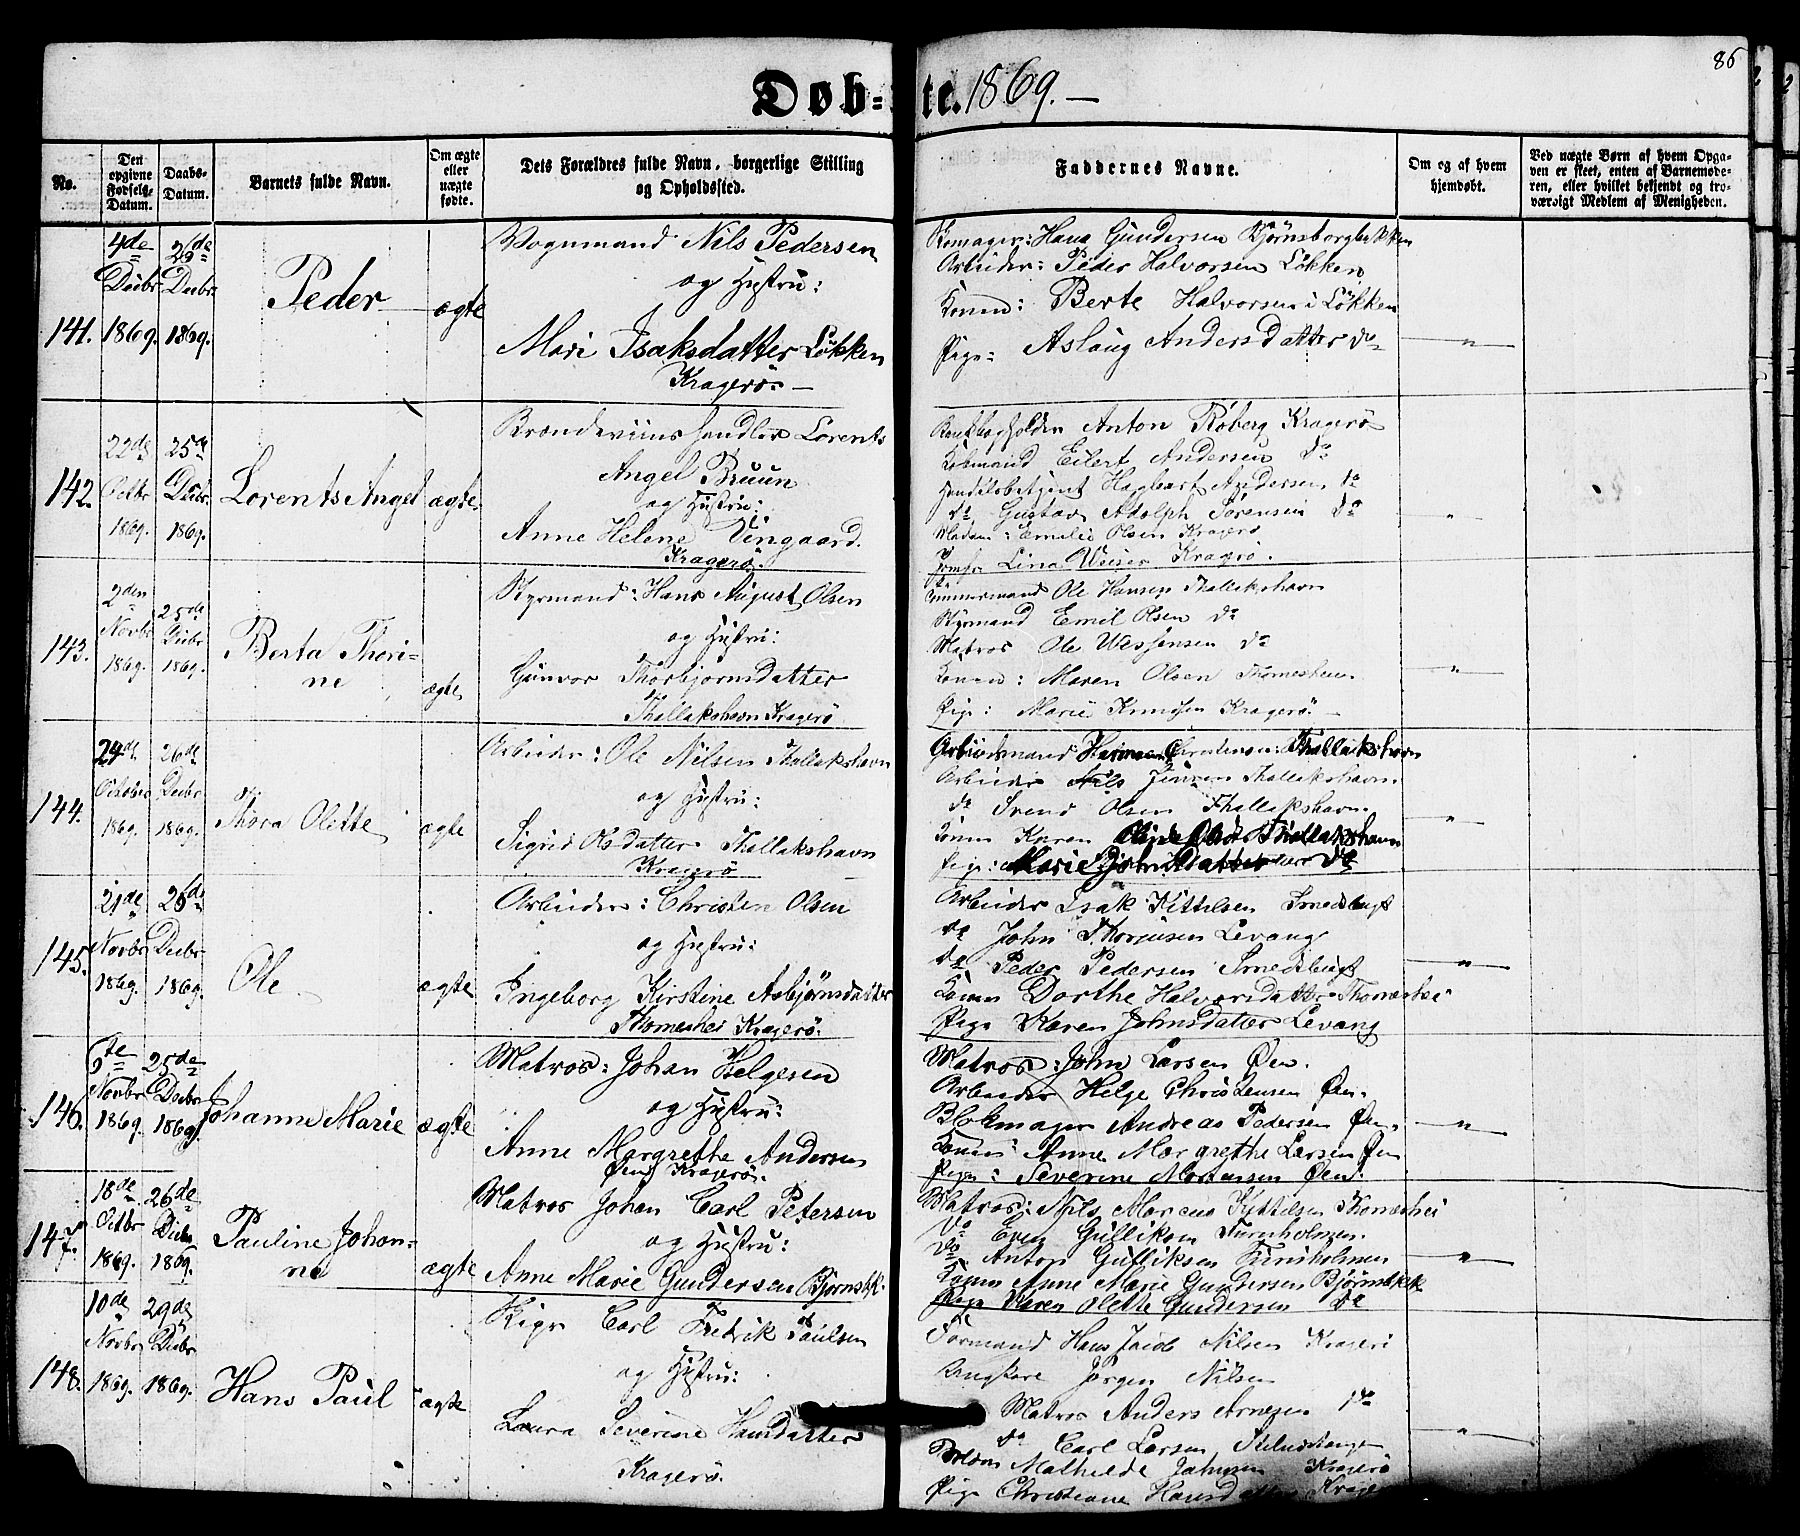 86
Døb-te. 1869. —
No.
Den opgivne Fødsels-Datum.
Daabs-Datum.
Barnets fulde Navn.
Om ægte eller uægte fødte.
Dets Forældres fulde Navn, borgerlige Stilling og Opholdssted.
Faddernes Navne.
Om og af hvem hjemdøbt.
Ved uægte Børn af hvem Opgaven er skeet, enten af Barnemoderen, eller hvilket bekjendt og troværdigt Medlem af Menigheden.
141.
4de Decbr 1869.
26de Decbr 1869.
Peder
ægte
Vognmand Nils Pedersen
og Hustru:
Mari Isaksdatter Løkken
Kragerø —
Hans Gundersen Bjørnsborgbakken
Arbeider: Peder Halvorsen Løkken
Konen: Berte Halvorsen i Løkken
Pige: Aslaug Andersdatter do
— " —
142.
22de Octbr 1869.
25de Decbr. 1869.
Lorents Angel
ægte
Brændeviinshandler Lorents
Angel Bruun
og Hustru:
Anne Helene Vingaard.
Kragerø.
Anton Röberg Kragerø
Kobmand Eilert Andersen do
Handelsbetjent Hagbart Andersen do
do Gustav Adolph Sørensen do
Madam: Emelie Olsen Kragerø
Jomfr Lina Weiser Kragerø.
"
143.
2den Novbr 1869.
25de Decbr 1869.
Berta Thori-
ne
ægte
Styrmand: Hans August Olsen
og Hustru:
Gunvor Thorbjørnsdatter
Thallakshavn Kragerø
Tømmermand Ole Hansen Thallakshavn
Styrmand Emil Olsen do
Matros Ole Wessensen do
Konen: Maren Olsen Thomeshei
Pige: Marie Knudsen Kragerø.
— " —
144.
24de October 1869.
26de Decbr. 1869.
Thora Olette
ægte
Arbeider: Ole Nilsen Thallakshavn
og Hustru:
Sigrid Olsdatter Thallakshavn
Kragerø
Arbeidsmand Thallakshavn
Arbeider Nils Jensen Thallakshavn.
do Svend Olsen Thallakshavn.
Konen Karen Thallakshavn
Pige: Marie do
— " —
145.
21de Novbr 1869.
26de Decbr 1869.
Ole
ægte
Arbeider: Christen Olsen
og Hustru:
Ingeborg Kirstine Asbjørnsdatter
Thomeshei Kragerø.
Arbeider Isak Kittelsen Smedsbugt
do John Thorjusen Levang
do Peder Pedersen Smedsbugt
Konen Dorthe Halvorsdatter Thomeshei
Pige Karen Johnsdatter Levang
— " —
146.
5te Novbr 1869.
25de Decbr 1869.
Johanne Marie
ægte
Matros: Johan Helgesen
og Hustru:
Anne Margrethe Andersen
Øen Kragerø.
Matros: John Larsen Øen.
Arbeider Helge Christensen Øen.
Blokmager Andreas Pedersen Øen.
Konen: Anne Margrethe Larsen Øen
Pige: Severine Mortensen Øen.
— " —
147.
18de Octbr 1869.
26de Decbr 1869.
Pauline Johan-
ne
ægte
Matros Johan Carl Petersen
og Hustru:
Anne Marie Gundersen Bjørnsbk.
Matros: Nils Marcus Kittelsen Thomeshei
do Even Gulliksen Furuholmen.
do Anton Gulliksen Furuholmen
Konen Anne Marie Gundersen Bjørnsbkk
Pige Karen Olette Gundersen do
— " —
148.
10de Novbr 1869.
29de Decbr 1869.
Hans Paul
ægte
Carl Fredrik Paulsen
og Hustru:
Laura Severine Hansdatter
Kragerø.
Formand Hans Jacob Nilsen Kragerø
Ungkarl Jørgen Nilsen
Matros Anders Arnesen do
do Carl Larsen
Mathilde Johnsen Kragerø
Pige Christiane
— " —